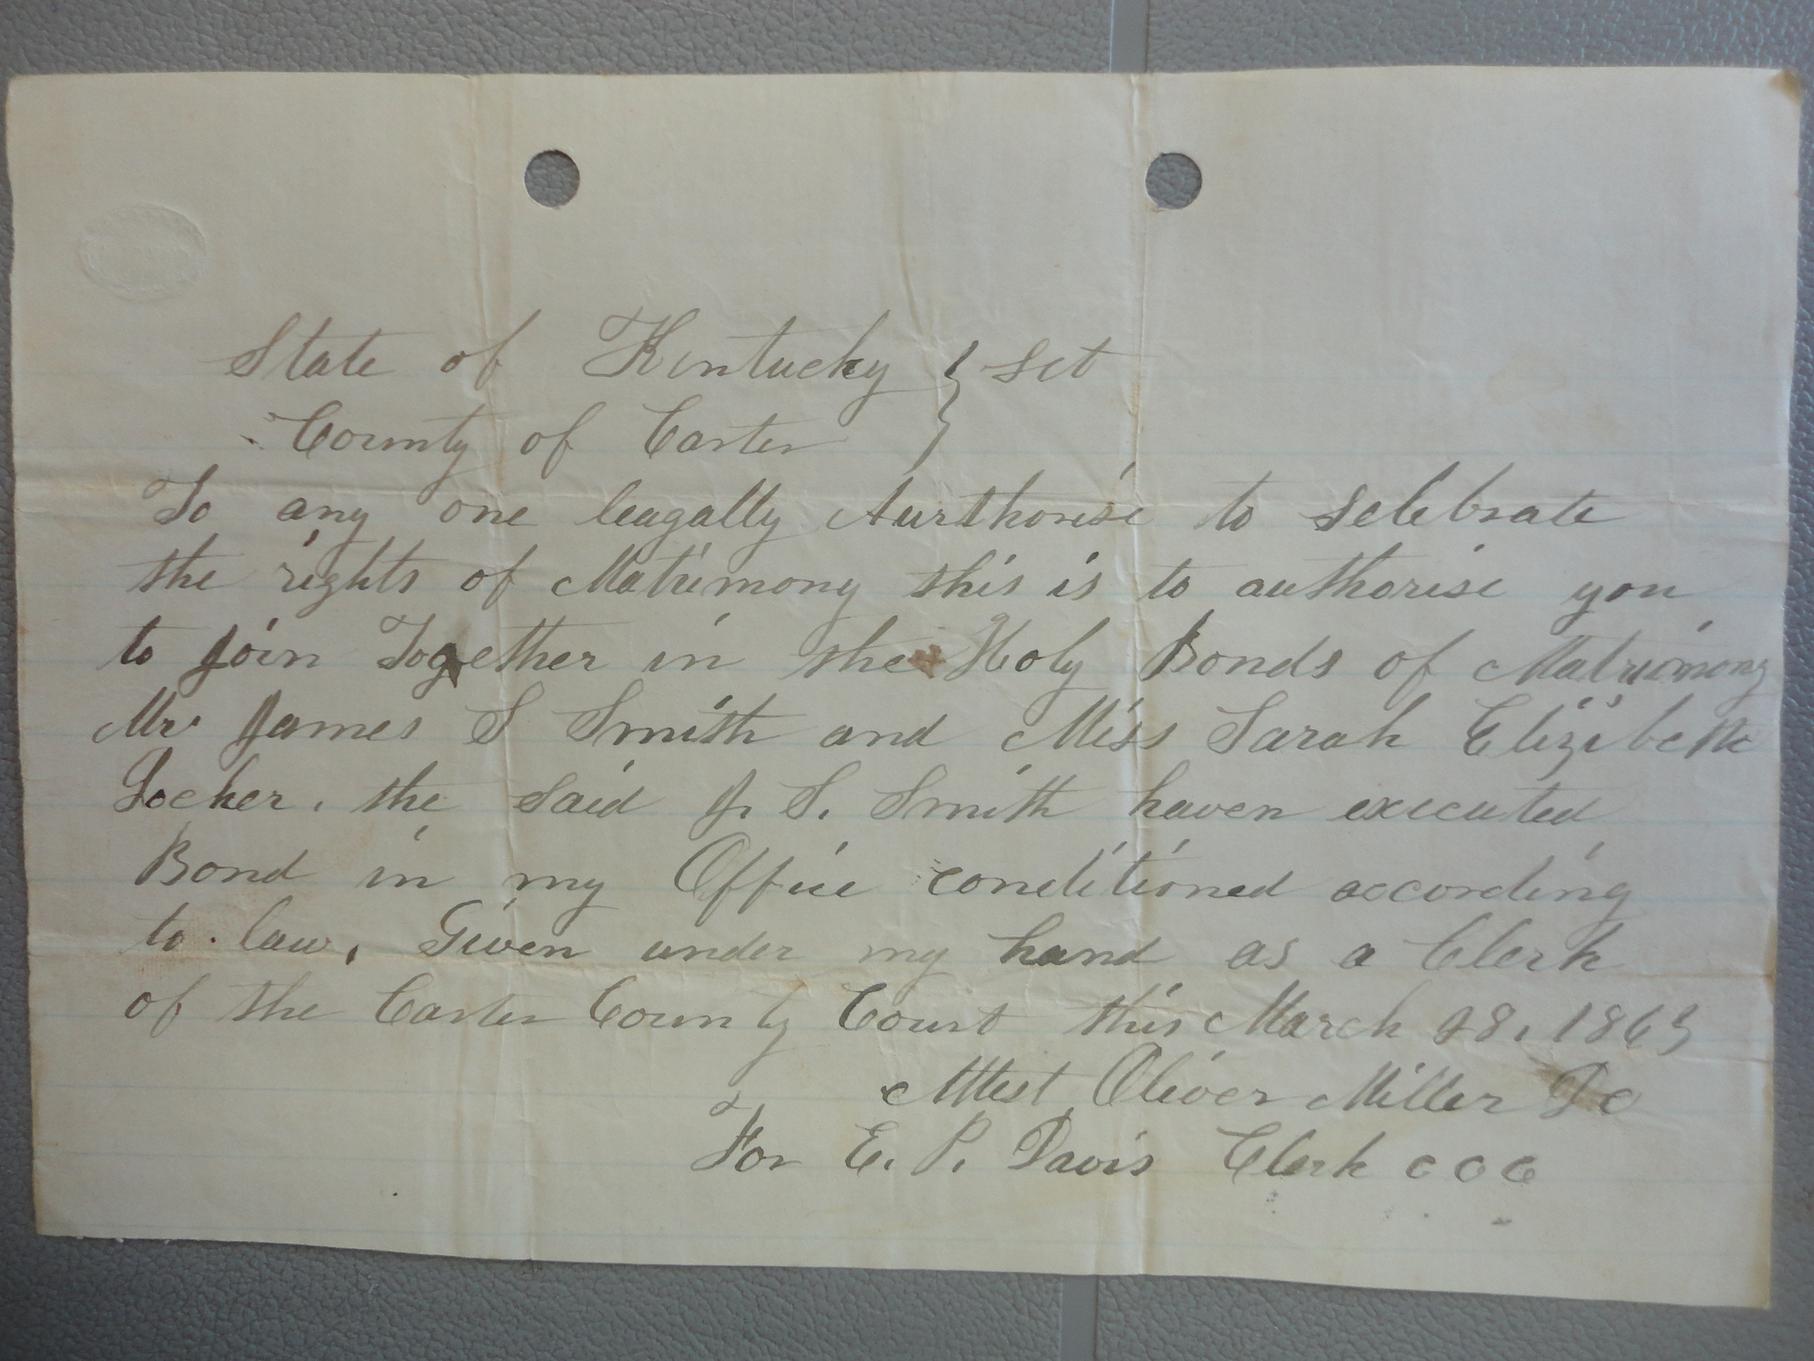 State of Kentucky } Sct
County of Carter
To any one leagally Aurthorise to Selebrate
the rights of Matrimony this is to authorise you
to join Together in the Holy Bonds of Matrimony
Mr James S Smith and Miss Sarah Elizibeth
Locker. the Said J. S. Smith haven executed
Bond in my Office conditioned according
to law. Given under my hand as a Clerk
of the Carter County Court this March 28. 1863
Attest Oliver Miller DC
For E. P. Davis Clerk CCC